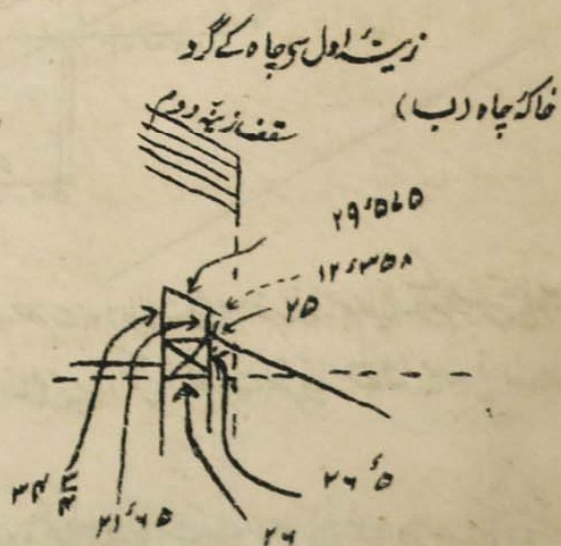 زینۂ اول سی چاہ کے گرد
خاکۂ چاہ (ب)
سقف زینۂ دوم
۲۹ء۵۶۵
۱۲ء۳۵۸
۲۵
۲۶ء۵
۲۱ء۶۵
۲۶